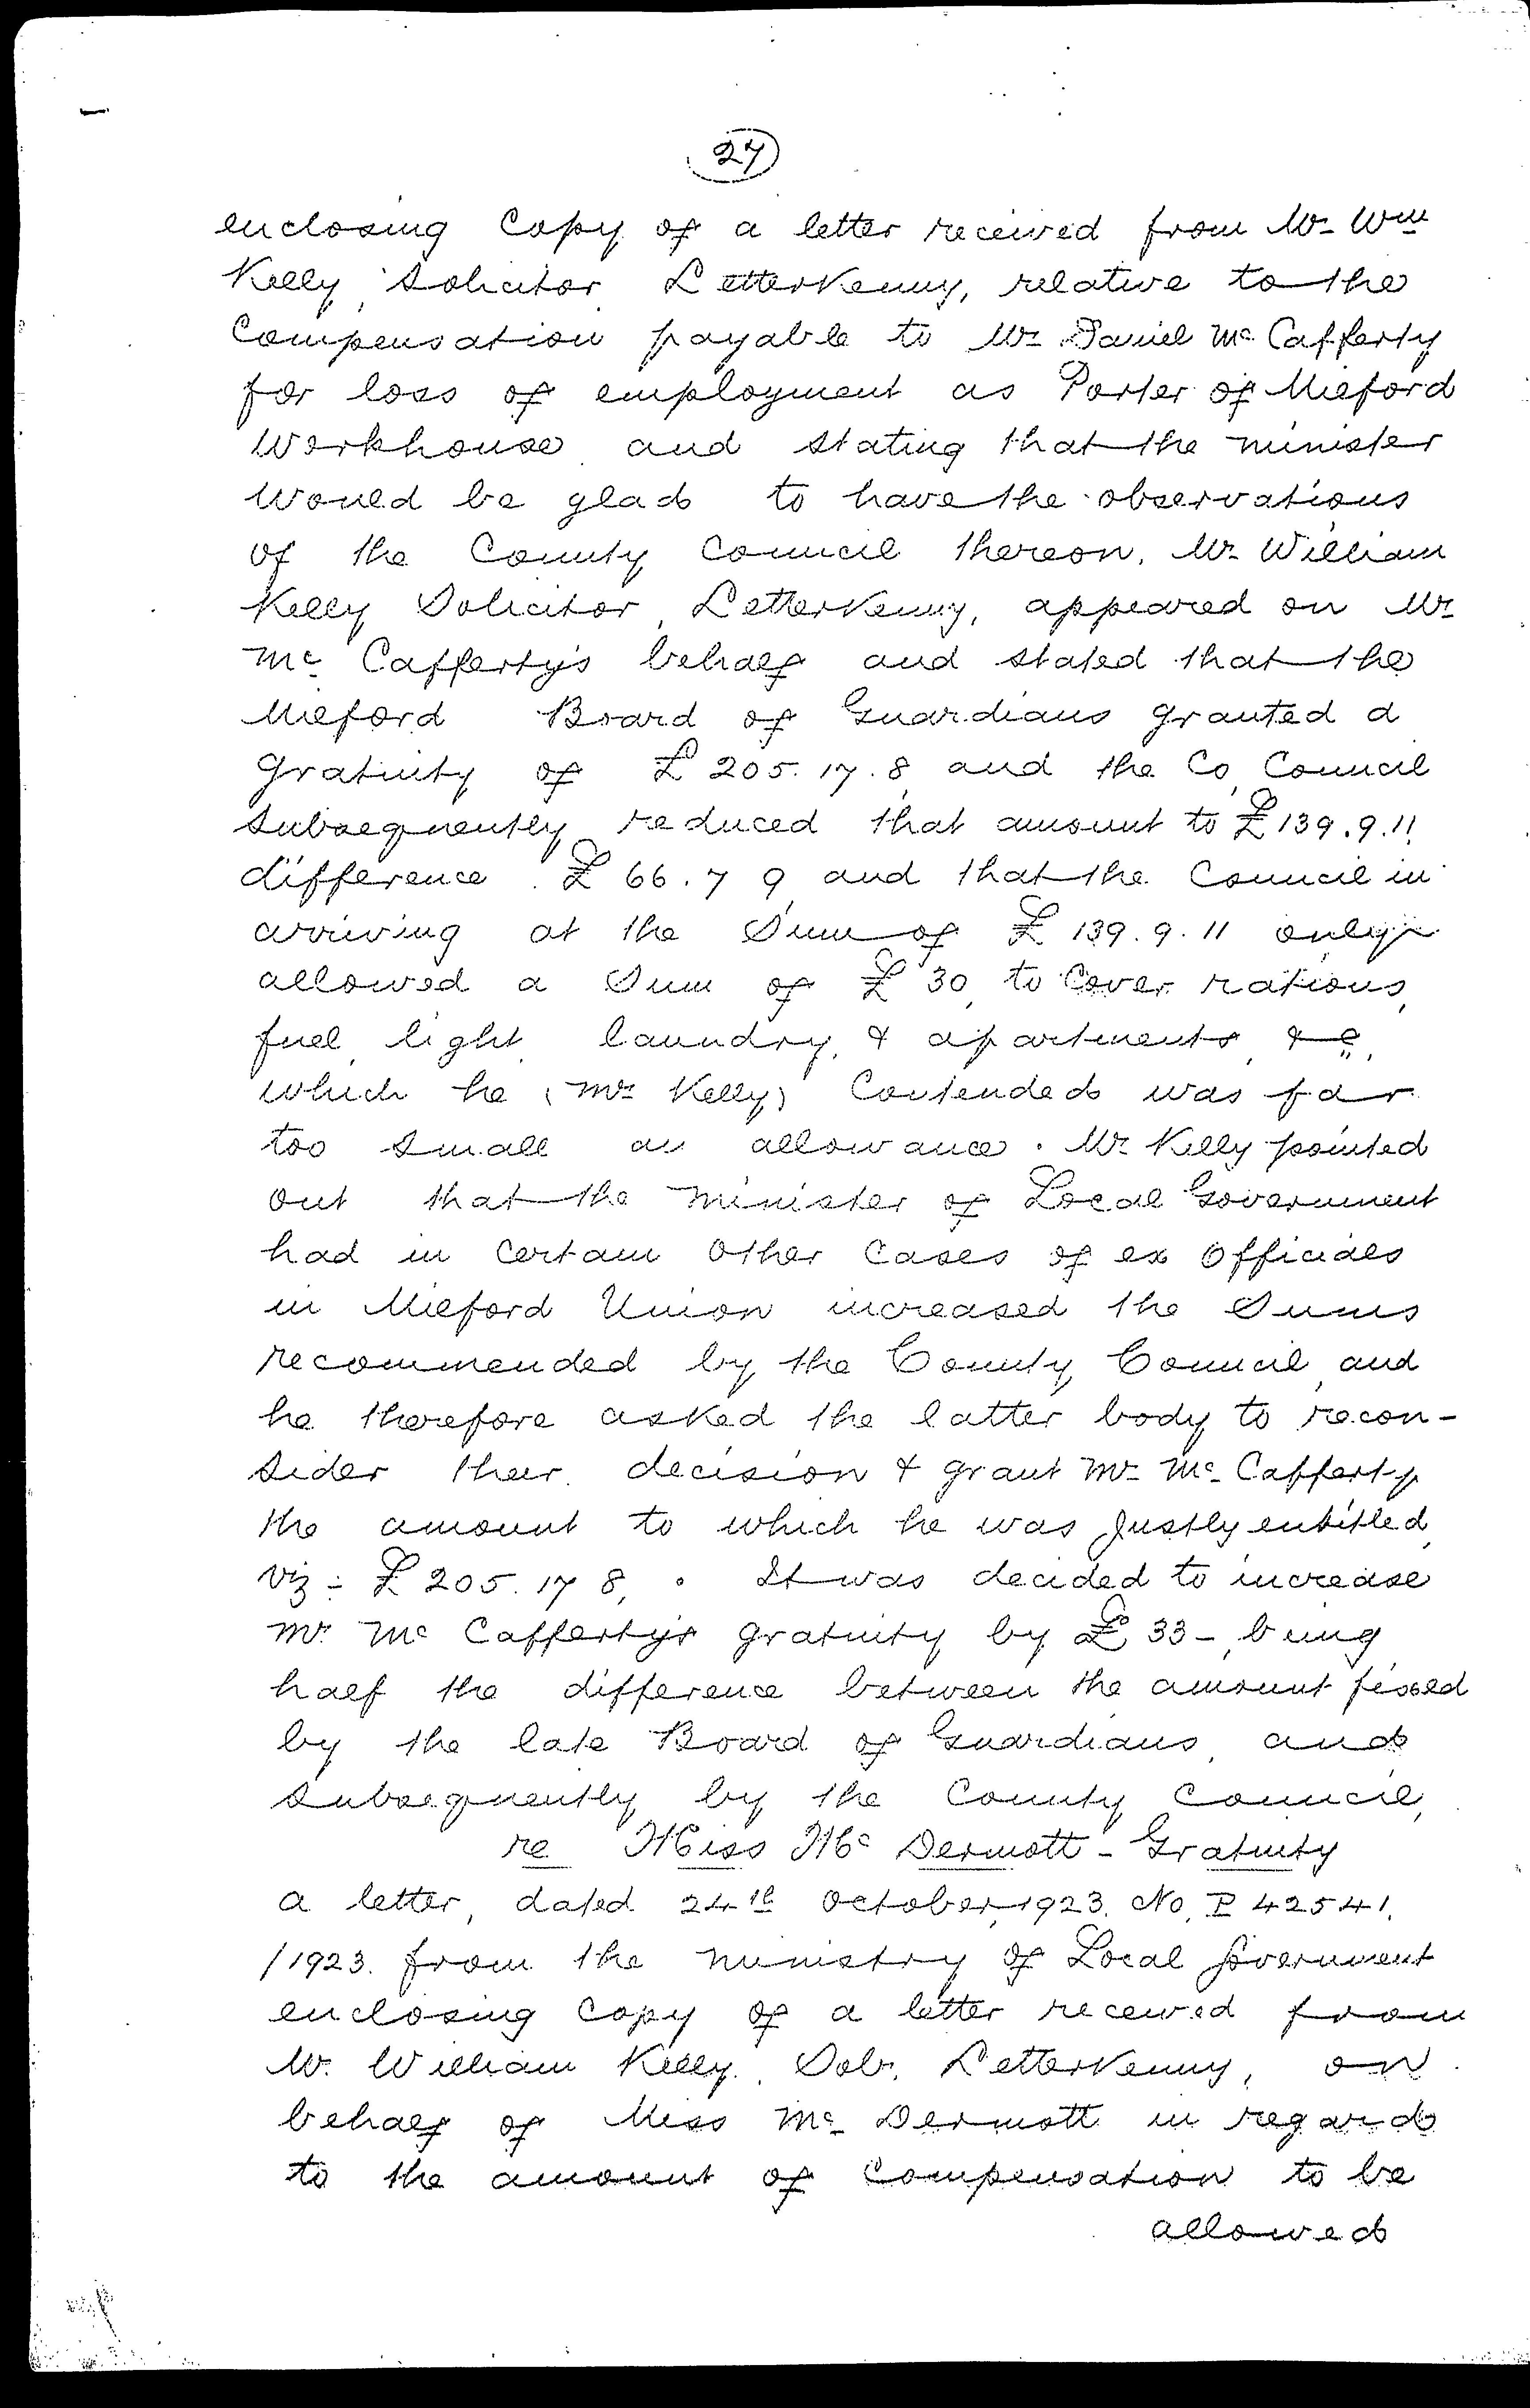 27
enclosing Copy of a letter received from Mr Wm
Kelly, Solicitor Letterkenny, relative to the
Compensation payable to Mr Daniel Mc Cafferty
for loss of employment as Porter of Milford
Workhouse and stating that the minister
would be glad to have the observations
of the County Council thereon. Mr William
Kelly Solicitor, Letterkenny, appeared on Mr
Mc Cafferty's behalf and stated that the
Milford Board of Guardians granted a
gratuity of £205.17.8, and the Co, Council
subsequently reduced that amount to £139.9.11.
difference. £66.7 9, and that the Council in
arriving at the Sum of £139.9.11 only
allowed a Sum of £30, to Cover rations,
fuel, light, laundry, & apartments, &c,
which he (Mr Kelly) Contended was far
too small an allowance. Mr Kelly pointed
out that the Minister of Local Government
had in Certain Other Cases of ex Officials
in Milford Union increased the Sums
recommended by the County Council, and
he therefore asked the latter body to recon-
sider their decision & grant Mr Mc Cafferty
the amount to which he was justly entitled,
viz: £205.17 8,. It was decided to increase
Mr Mc Cafferty's gratuity by £33-, being
half the difference between the amount fixed
by the late Board of Guardians, and
subsequently by the County Council,
re Miss Mc Dermott - Gratuity
a letter, dated 24th October, 1923. No, P 42541.
/1923. from the ministry of Local Government
enclosing Copy of a letter received from
Mr. William Kelly. Solr. Letterkenny, on
behalf of Miss Mc Dermott in regard
to the amount of Compensation to be
allowed